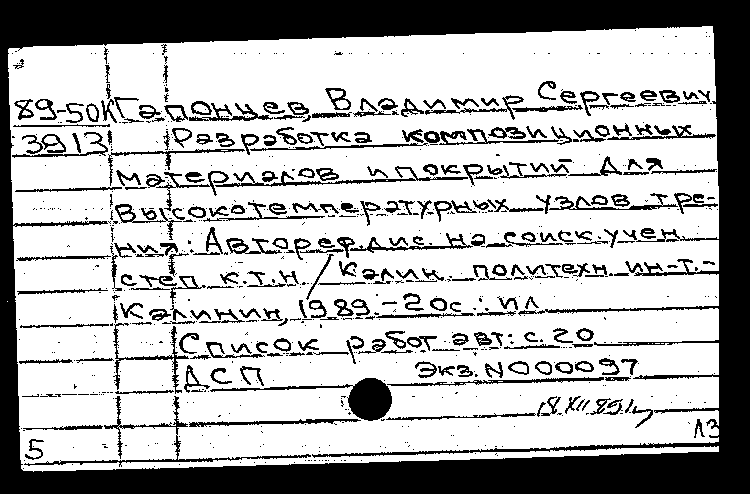 89-50К Гапонцев, Владимир Сергеевич
3913 Разработка композиционных
материалов и покрытий для
высокотемпературных узлов тре-
ния: Автореф. дис. на соиск. учен.
степ. к.т.н. / Калин. политехн. ин-т.-
Калинин, 1989.-20с.: ил
Список работ авт.: с. 20
ДСП Экз. N000097
18.XII 89г.
5 ЛЗ